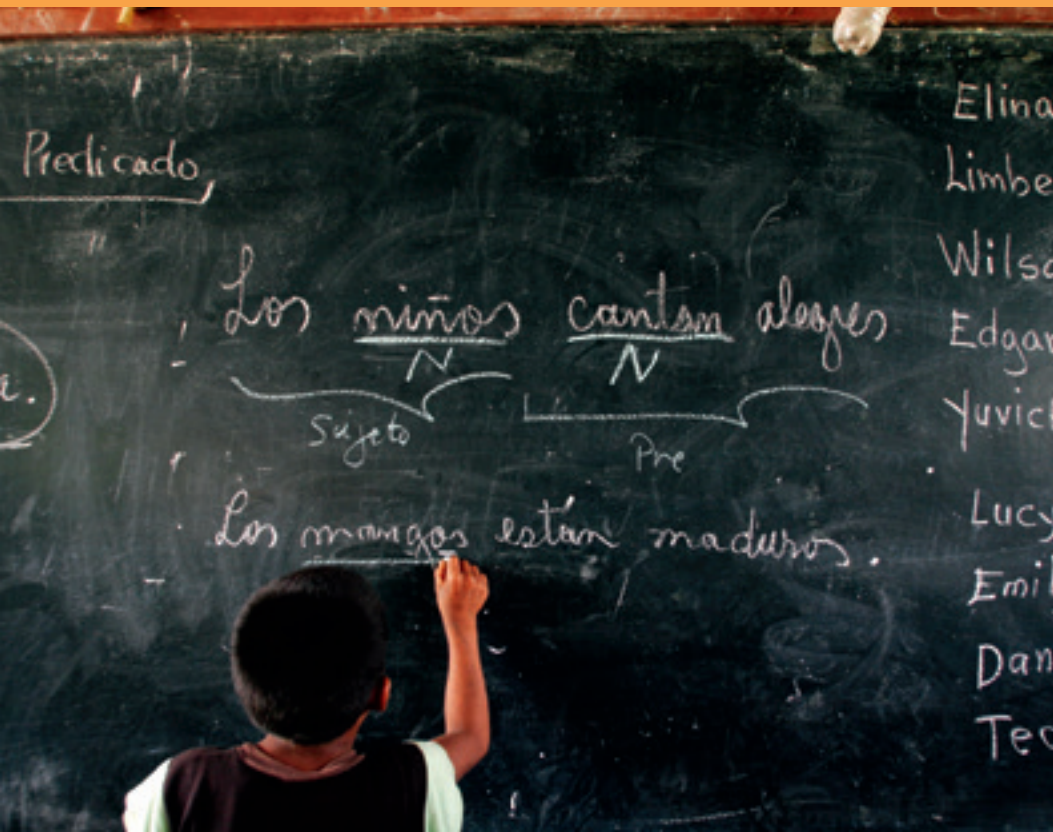 Predicado,
a.
Los niños cantan alegres
N N
Sujeto Pre
Los mangos están maduros.
Elina
Limbe
Wilso
Edgar
Yuvich
Lucy
Emil
Dan
Teo